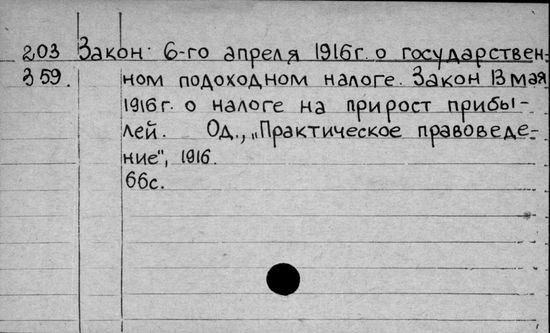 203 Закон 6-го апреля 1916г. о государствен-
359. ном подоходном налоге. Закон 13 мая
1916г. о налоге на прирост прибы-
лей. Од., „Практическое правоведе-
ние", 1916.
66с.